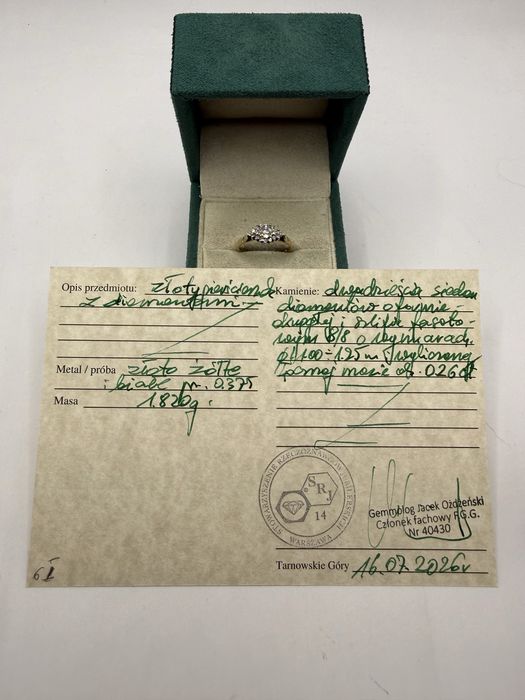 Opis przedmiotu: złoty pierścionek
z diamentami.
Metal / próba złoto żółte
i białe pr. 0.375
Masa 1.820g.
Kamienie: dwadzieścia siedem
diamentów o formie
okrągłej i szlifie faseto
wym 8/8 o wymiarach
ø 1.00÷1.25 m i wyliczonej
łącznej masie ok. 0.26ct
STOWARZYSZENIE RZECZOZNAWCÓW JUBILERSKICH
SRJ
14
WARSZAWA
Gemmolog Jacek Ożdżeński
Członek fachowy F.G.G.
Nr 40430
Tarnowskie Góry 16.07.2026r
6 I